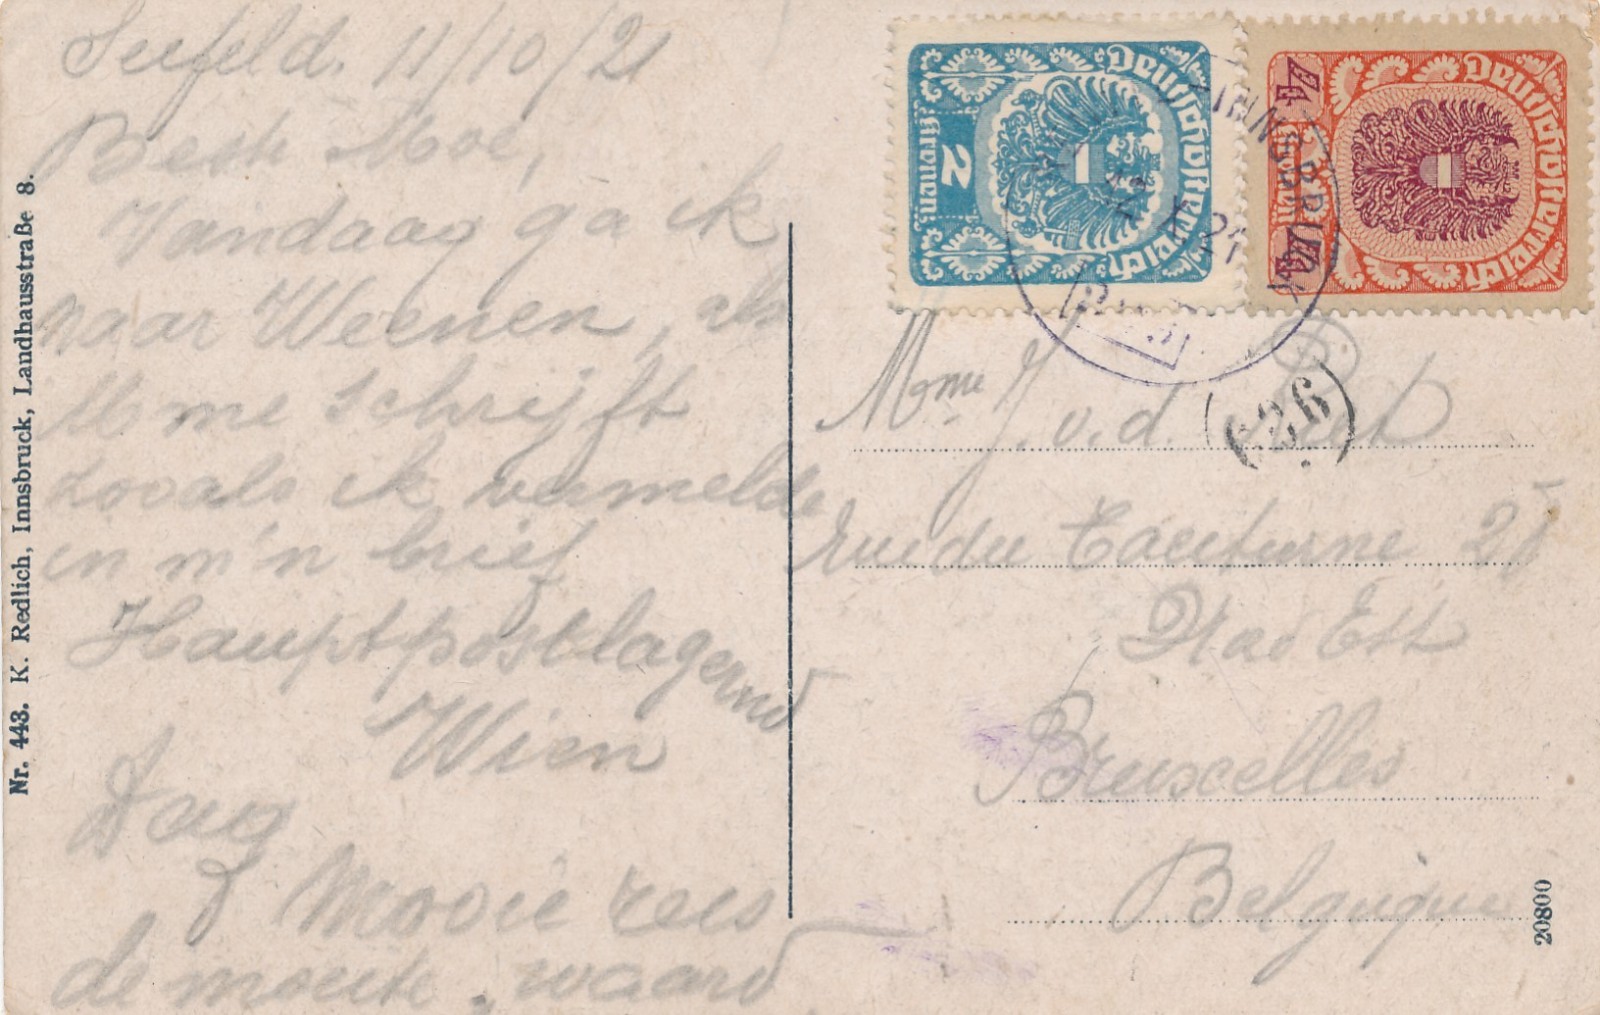 Seefeld. 11/10/21
Beste Moe,
Vandaag ga ik
naar Weenen, als
U me schrijft
zooals ik vermelde
in m'n brief
Hauptpostlagernd
Wien
Dag
J
Mooie reis
de moeite waard
Nr. 443. K. Redlich, Innsbruck, Landhausstraße 8.
2 Kronen
Deutschösterreich
4 4
Deutschösterreich
INNSBR
12 X 21
(626)
Mme J. v. d.
Rue du Taciturne 25
Bruxelles
Belgique
20800